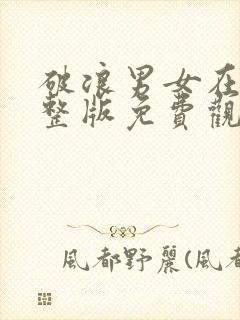 破浪男女在
整版免費觀
風都野麗(風都